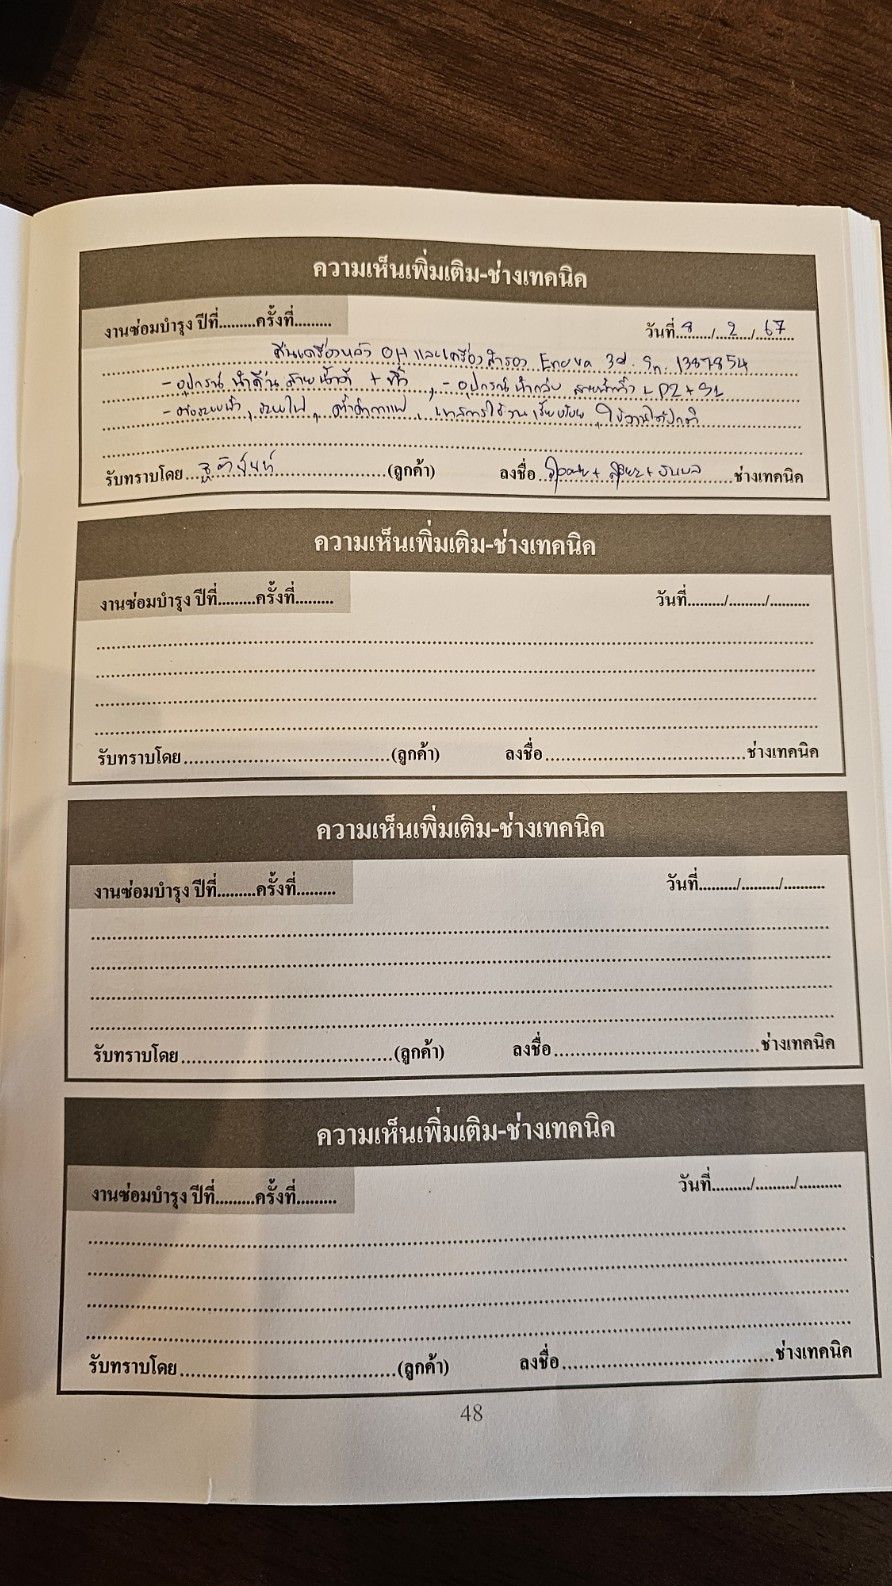 ความเห็นเพิ่มเติม-ช่างเทคนิค
งานซ่อมบำรุง ปีที่.........ครั้งที่......... วันที่ 8 / 2 / 67
คืนเครื่องหลัง OH และเครื่องสำรอง Enova 3d. Sn. 1387854
- อุปกรณ์นำคืน สายน้ำดี + ทิ้ง , - อุปกรณ์นำกลับ สายน้ำทิ้ง
- ต่อระบบน้ำ, ระบบไฟ, ใช้งานได้ปกติ
รับทราบโดย (ลูกค้า) ลงชื่อ ช่างเทคนิค
ความเห็นเพิ่มเติม-ช่างเทคนิค
งานซ่อมบำรุง ปีที่.........ครั้งที่......... วันที่........./........./..........
รับทราบโดย.......................................(ลูกค้า) ลงชื่อ.......................................ช่างเทคนิค
ความเห็นเพิ่มเติม-ช่างเทคนิค
งานซ่อมบำรุง ปีที่.........ครั้งที่......... วันที่........./........./..........
รับทราบโดย.......................................(ลูกค้า) ลงชื่อ.......................................ช่างเทคนิค
ความเห็นเพิ่มเติม-ช่างเทคนิค
งานซ่อมบำรุง ปีที่.........ครั้งที่......... วันที่........./........./..........
รับทราบโดย.......................................(ลูกค้า) ลงชื่อ.......................................ช่างเทคนิค
48